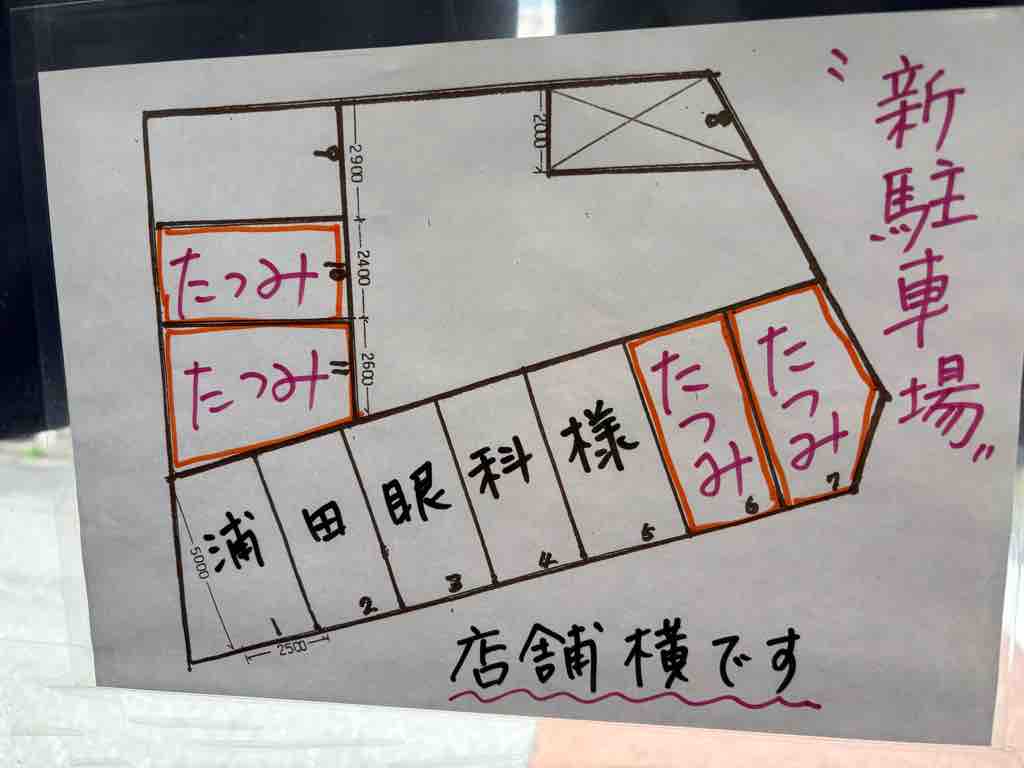 〝新駐車場〟
2900
2000
8
9
たつみ
10
2400
たつみ
11
2600
浦田眼科様
たつみ
たつみ
5000
1
2
3
4
5
6
7
2500
店舗横です